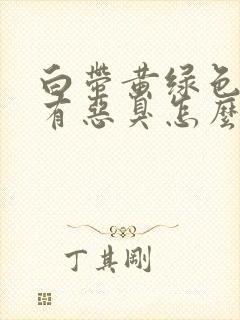 白带黄绿色
有恶臭怎麼
丁其剛